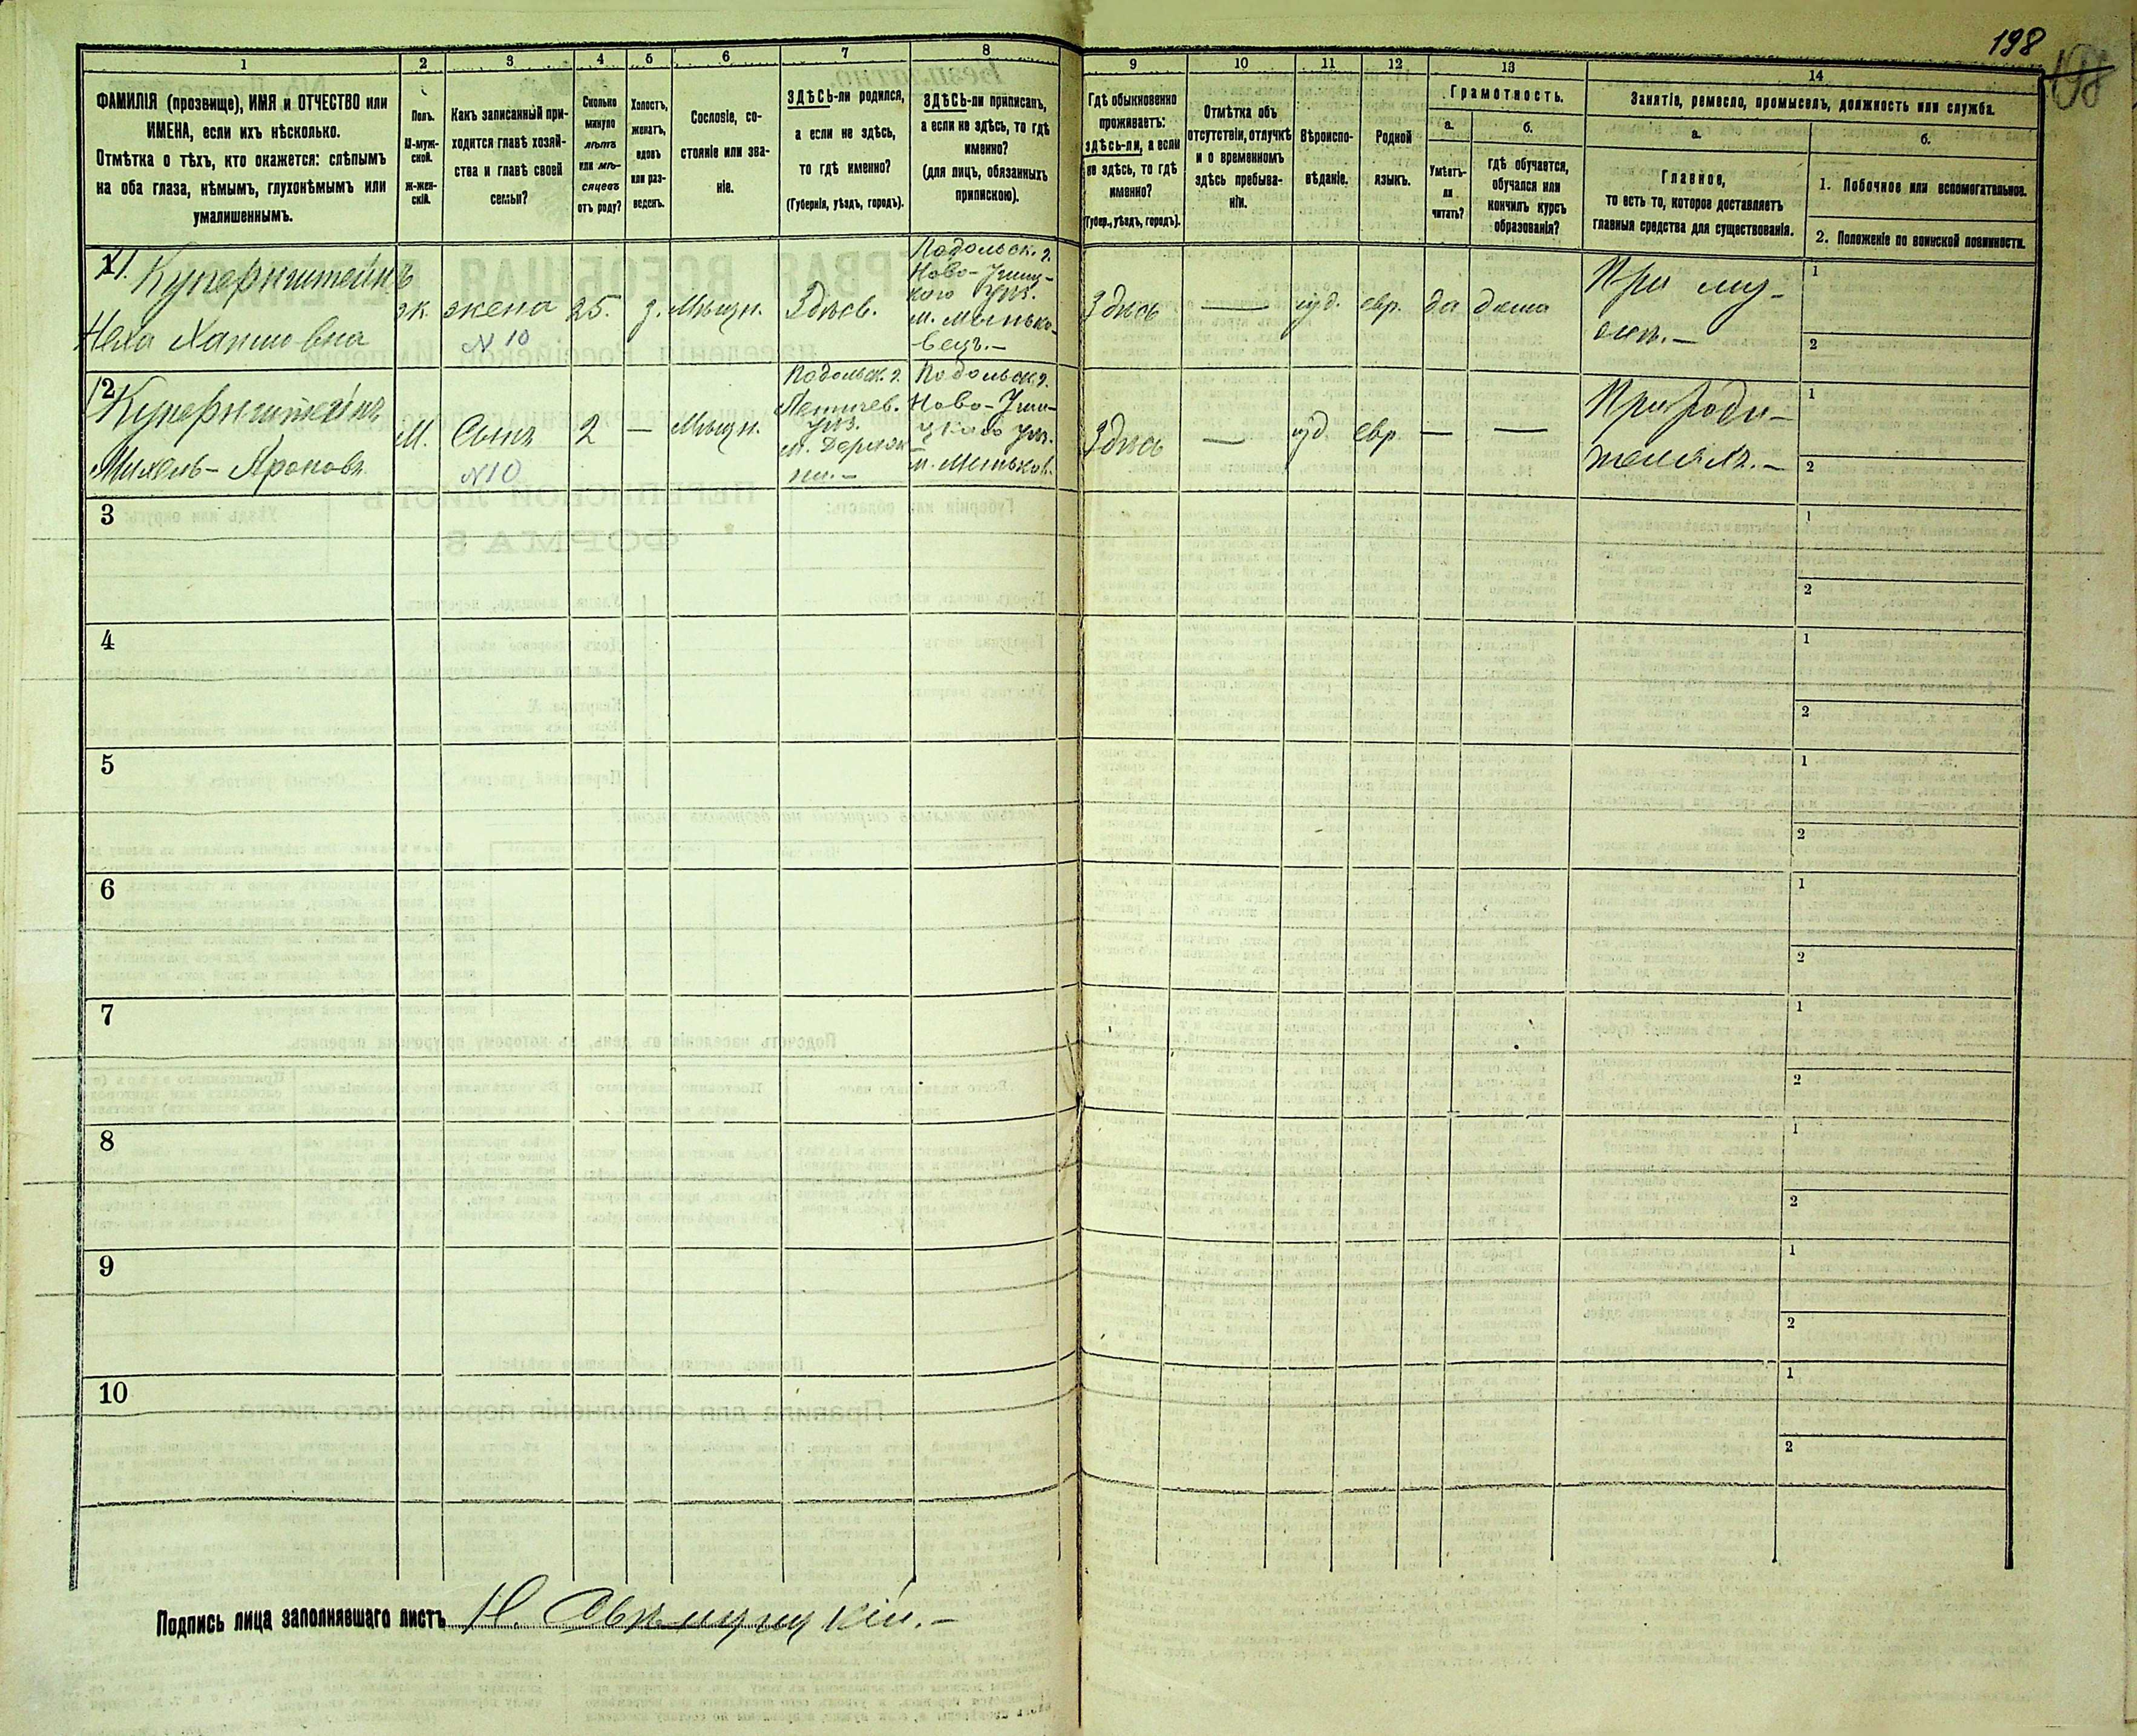 198
1
2
3
4
5
6
7
8
9
10
11
12
13
14
ФАМИЛІЯ (прозвище), ИМЯ и ОТЧЕСТВО или
ИМЕНА, если ихъ нѣсколько.
Отмѣтка о тѣхъ, кто окажется: слѣпымъ
на оба глаза, нѣмымъ, глухонѣмымъ или
умалишеннымъ.
Полъ.
М-муж-
ской.
ж-жен-
скій.
Какъ записанный при-
ходится главѣ хозяй-
ства и главѣ своей
семьи?
Сколько
минуло
лѣтъ
или мѣ-
сяцевъ
отъ роду?
Холостъ,
женатъ,
вдовъ
или раз-
веденъ.
Сословіе, со-
стояніе или зва-
ніе.
ЗДѢСЬ-ли родился,
а если не здѣсь,
то гдѣ именно?
(Губернія, уѣздъ, городъ).
ЗДѢСЬ-ли приписанъ,
а если не здѣсь, то гдѣ
именно?
(для лицъ, обязанныхъ
припискою).
Гдѣ обыкновенно
проживаетъ:
здѣсь-ли, а если
не здѣсь, то гдѣ
именно?
(Губер., уѣздъ, городъ).
Отмѣтка объ
отсутствіи, отлучкѣ
и о временномъ
здѣсь пребыва-
ніи.
Вѣроиспо-
вѣданіе.
Родной
языкъ.
Грамотность.
а.
Умѣетъ-
ли
читать?
б.
гдѣ обучается,
обучался или
кончилъ курсъ
образованія?
Занятіе, ремесло, промыселъ, должность или служба.
а.
Главное,
то есть то, которое доставляетъ
главныя средства для существованія.
б.
1. Побочное или вспомогательное.
2. Положеніе по воинской повинности.
11. Куперштейнъ
Неха Хаимовна
ж.
жена
N 10
25.
з.
Мѣщн.
Здѣсь.
Подольск. г.
Ново-Ушиц-
кого уѣз.
м. Минько-
вецъ.—
Здѣсь
—
іуд.
евр.
да
дома
При му-
жѣ.—
1
2
12
Куперштейнъ
Михель-Ароновъ
М.
Сынъ
N 10
2
—
Мѣщн.
Подольск. г.
Летичев.
уѣз.
м. Деражн-
ни.—
Подольск. г.
Ново-Уши-
цкаго уѣз.
м. Миньков.
Здѣсь
—
іуд.
евр.
—
—
При роди-
теляхъ.—
1
2
3
1
2
4
1
2
5
1
2
6
1
2
7
1
2
8
1
2
9
1
2
10
1
2
Подпись лица заполнявшаго листъ